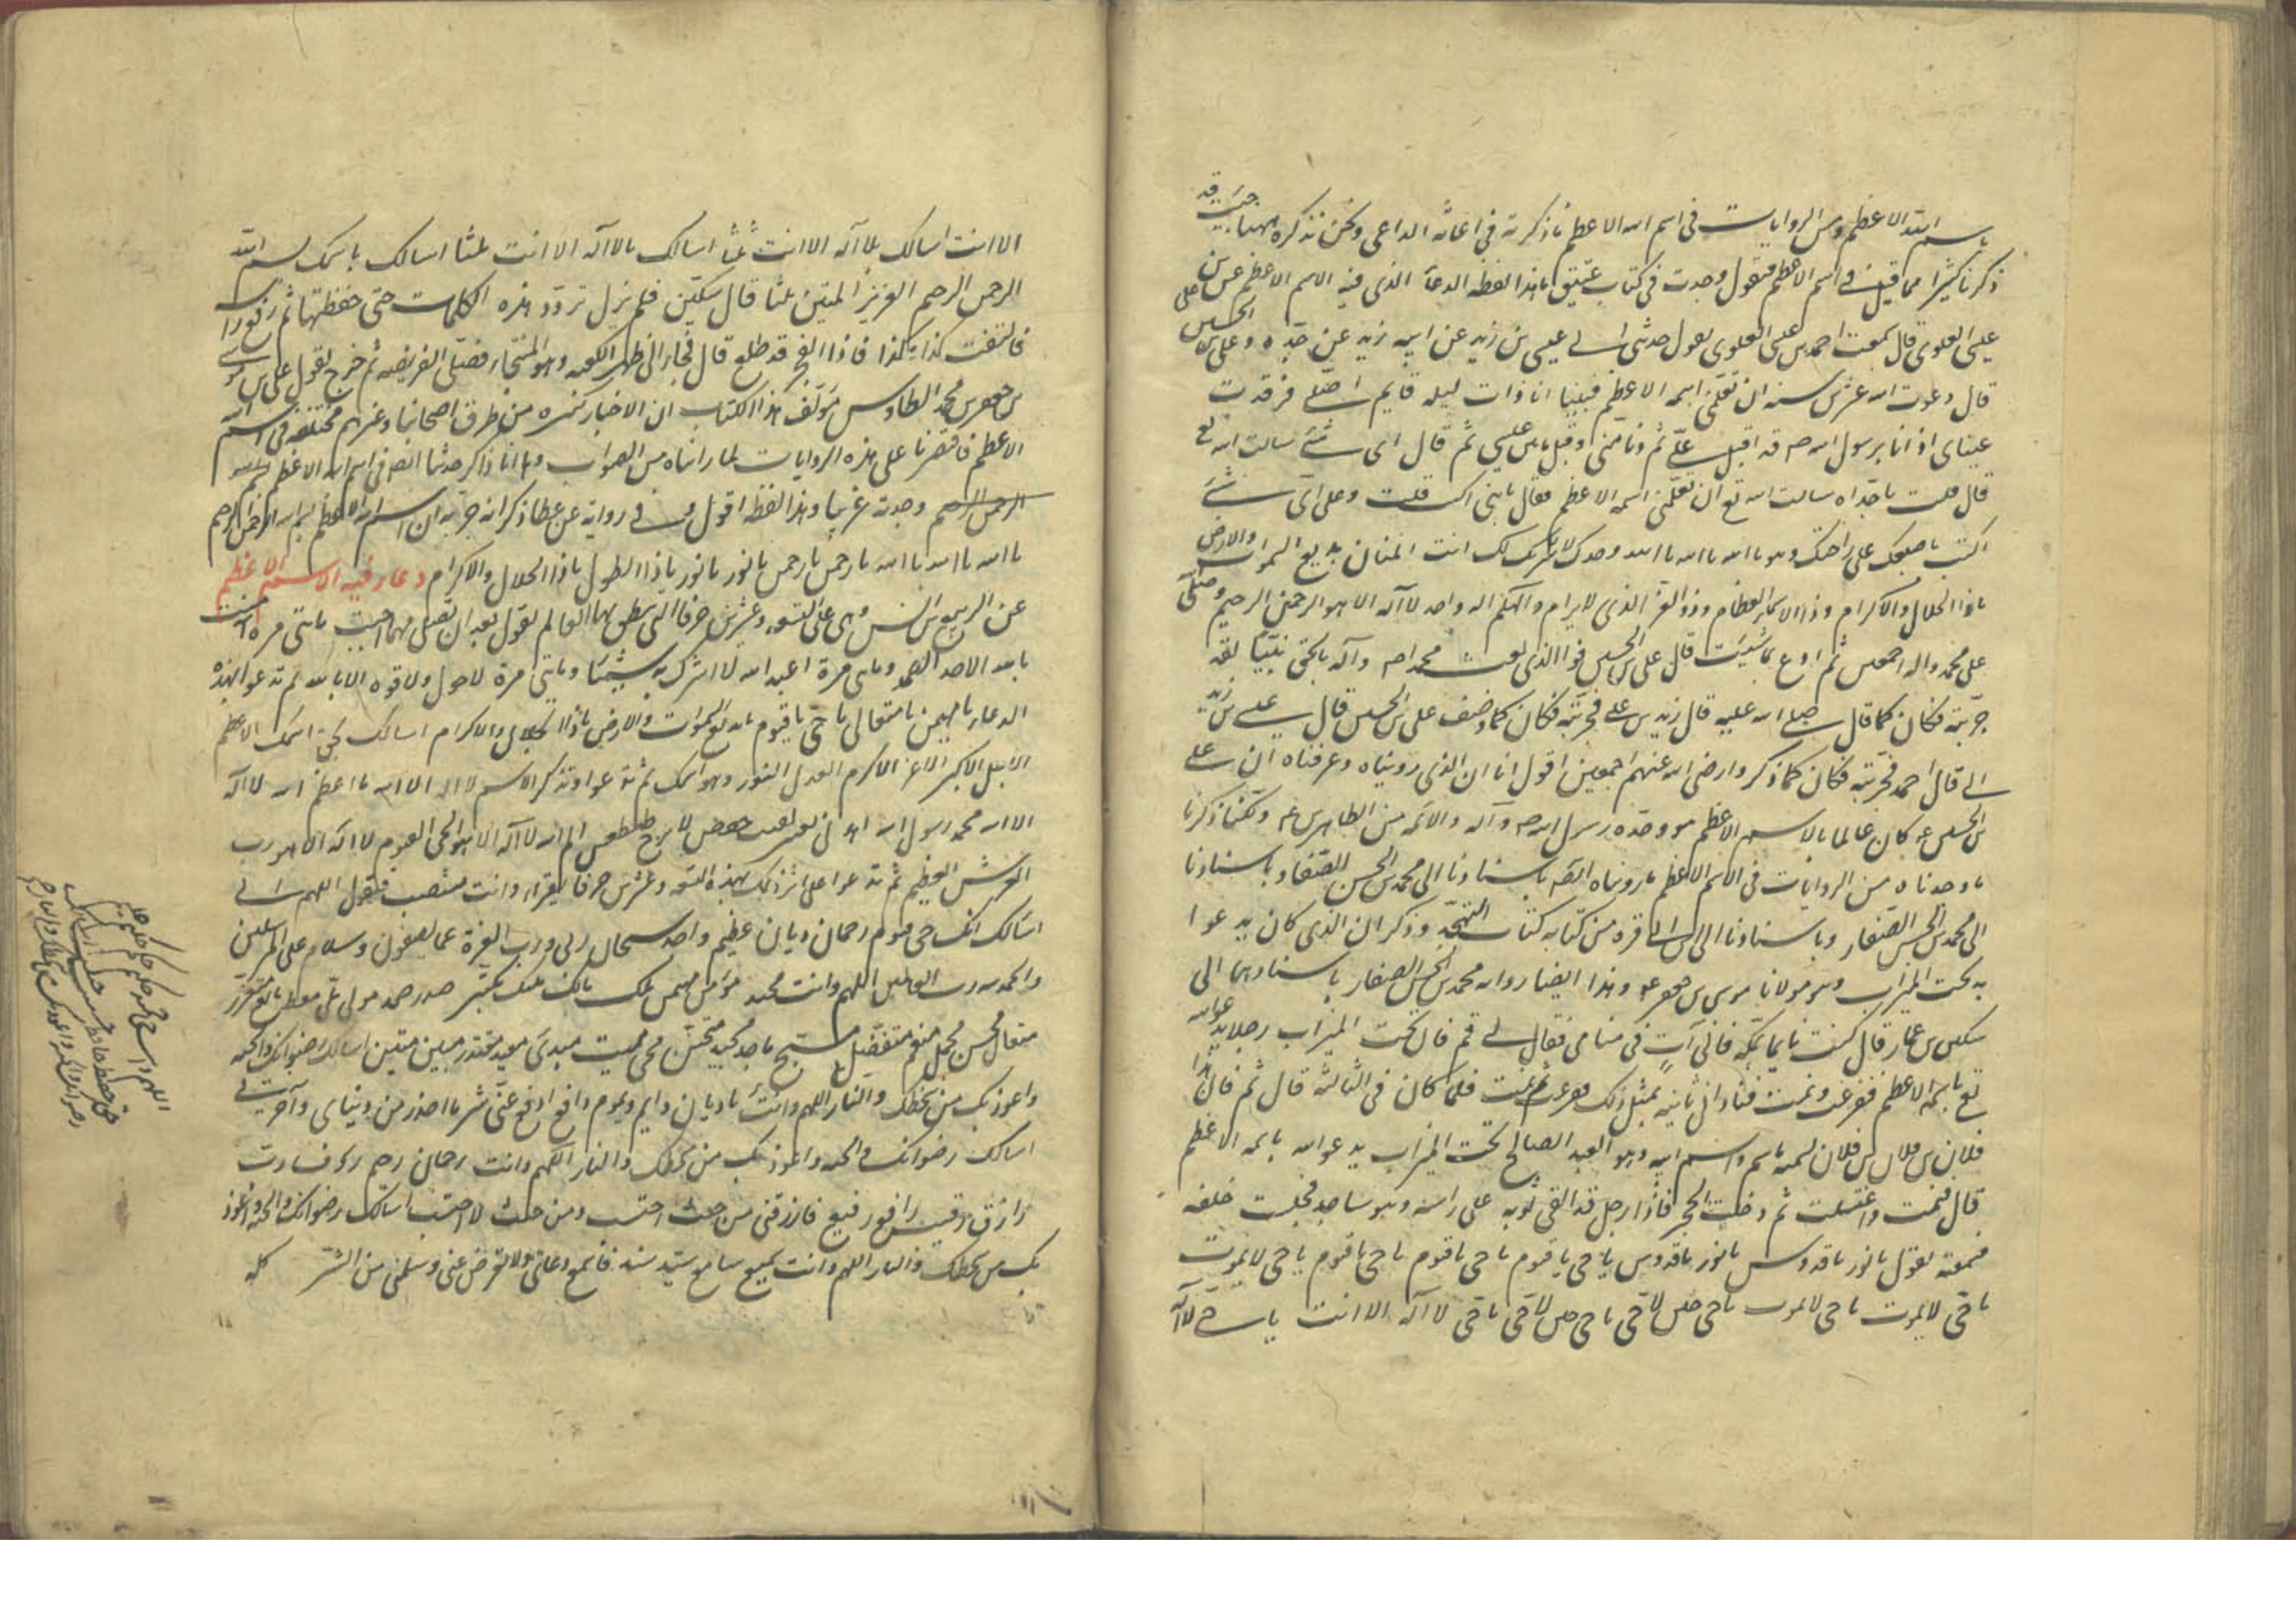 باسم الله الاعظم ومن الروايات فى اسم الله الاعظم ما ذكرته فى اغاثة الداعى ونحن نذكره ههنا حيث قد
ذكرنا كثيرا مما قيل فى اسم الاعظم فنقول وجدت فى كتاب عتيق ما هذا لفظه الدعآ الذى فيه الاسم الاعظم عن على بن
عيسى العلوى قال سمعت احمد بن عيسى العلوى يقول حدثنى ابى عيسى بن زيد عن ابيه زيد عن جده على بن الحسين
قال دعوت الله عشرين سنه ان يعلمنى اسمه الاعظم فبينا انا ذات ليله قايم اصلى فرقدت
عيناى اذ انا برسول الله ص قد اقبل على ثم دنا منى وقبل ما بين عينى ثم قال اى شئ سالت الله تع
قال قلت يا جداه سالت الله تع ان يعلمنى اسمه الاعظم فقال يا بنى اكتب قلت وعلى اى شئ
اكتب باصبعك على راحتك وهو يا الله يا الله يا الله وحدك لا شريك لك انت المنان بديع السموات والارض
يا ذا الجلال والاكرام وذا الاسماء العظام وذو العز الذى لا يرام والهكم اله واحد لا اله الا هو الرحمن الرحيم وصلى
على محمد واله اجمعين ثم ادع بما شئت قال على بن الحسين فوا الذى بعث محمدا ص وآله بالحق نبيا لقد
جربته فكان كما قال صلى الله عليه قال زيد بن على فجربته فكان كما وصف على بن الحسين قال عيسى بن زيد
ابى قال احمد فجربته فكان كما ذكروا رضى الله عنهم اجمعين اقول انا ان الذى رويناه وعرفناه ان على
بن الحسين ع كان عالما بالاسم الاعظم هو وجده رسول الله ص وآله والائمه من الطاهرين ع ولكننا ذكرنا
ما وجدناه من الروايات فى الاسم الاعظم ما رويناه ايضا باسنادنا الى محمد بن الحسن الصفار وباسنادنا
الى محمد بن الحسن الصفار وباسنادنا الى ابن ابى قره من كتابه كتاب التهجد وذكر ان الذى كان يدعوا
به تحت الميزاب وهو مولانا موسى بن جعفر ع وهذا ايضا رواه محمد بن الحسن الصفار باسناديهما الى
سكين بن عمار قال كنت نايما بمكه فاتانى آت فى منامى فقال لى قم فان تحت الميزاب رجلا يدعوا الله
تع باسمه الاعظم ففزعت ونمت فنادانى ثانيه بمثل ذلك ففزعت ثم نمت فلما كان فى الثالثه قال قم فان هذا
فلان بن فلان بن فلان يسميه باسمه واسم ابيه وهو العبد الصالح تحت الميزاب يدعو الله باسمه الاعظم
قال فقمت واغتسلت ثم دخلت الحجر فاذا رجل قد القى ثوبه على راسه وهو ساجد فجلست خلفه
فسمعته يقول يا نور يا قدوس يا نور يا قدوس يا حى يا قيوم يا حى يا قيوم يا حى يا قيوم يا حى لا يموت
يا حى لا يموت يا حى لا يموت يا حى حين لا حى يا حى حين لا حى يا حى لا اله الا انت يا حى لا اله
الا انت اسالك بلا اله الا انت ثلثا اسالك بلا اله الا انت ثلثا اسالك باسمك بسم الله
الرحمن الرحيم العزيز المتين ثلثا قال سكين فلم يزل يردد هذه الكلمات حتى حفظتها ثم رفع راسه
فالتفت كذا وكذا فاذا الفجر قد طلع قال فجاء الى ظهر الكعبه وهو المستجار فصلى الفريضه ثم خرج يقول على بن موسى
بن جعفر بن محمد الطاوس مولف هذا الكتاب ان الاخبار كثيره من طرق اصحابنا وغيرهم مختلفه فى اسم الله
الاعظم فاقتصرنا على هذه الروايات لما رايناه من الصواب وها انا ذاكر حديثا ايضا فى اسم الله الاعظم بسم الله
الرحمن الرحيم وجدته غريبا وهذا لفظه اقول وفى روايه عن عطا ذكر انه جربه ان اسم الله الاعظم بسم الله الرحمن الرحيم
يا الله يا الله يا الله يا رحمن يا رحمن يا نور يا نور يا ذا الطول يا ذا الجلال والاكرام دعاء فيه الاسم الاعظم
عن الربيع بن انس وهى على التسعه وعشرين حرفا التى ينطق بها العالم يقول بعد ان تصلى مهما احببت مايتى مره امنت
بالله الاحد الصمد ومايتى مرة اعبد الله لا اشرك به شيئا ومايتى مرة لا حول ولا قوه الا بالله ثم تدعو بهذه
الدعاء يا مهيمن يا متعالى يا حى يا قيوم يا بديع السموات والارض يا ذا الجلال والاكرام اسالك بحق اسمك الاعظم
الاجل الاكبر الاعز الاكرم العدل النور وهو اسمك ثم تدعوا وتذكر الاسم لا اله الا الله ما اعظم الله لا اله
الا الله محمد رسول الله الم الله لا اله الا هو الحى القيوم لا اله الا هو رب
العرش العظيم ثم تدعوا على اثر ذلك بهذه التسعه وعشرين حرفا يقراء وانت منتصب فتقول اللهم انى
اسالك انك حى قيوم رحمان ديان عظيم واحد سبحان ربى ورب العزة عما يصفون وسلام على المرسلين
والحمد لله رب العالمين اللهم وانت مجيد مؤمن مهيمن ملك مالك مليك متكبر صمد
متعال محسن مجمل منعم متفضل مسبح ماجد مجيد متحنن محى مميت مبدئ معيد مقتدر مبين متين اسالك رضوانك والجنه
واعوذ بك من سخطك والنار اللهم وانت يا ديان دايم ديموم دافع ادفع عنى شر ما احذر من دنياى وآخرتى
اسالك رضوانك والجنه واعوذ بك من سخطك والنار اللهم وانت رحمان رحيم روف
رازق رقيب رافع رفيع فارزقنى من حيث احتسب ومن حيث لا احتسب اسالك رضوانك والجنه واعوذ
بك من سخطك والنار اللهم وانت سميع سامع سيد سند فاسمع دعائى ولا تعرض عنى وسلمنى من الشر كله